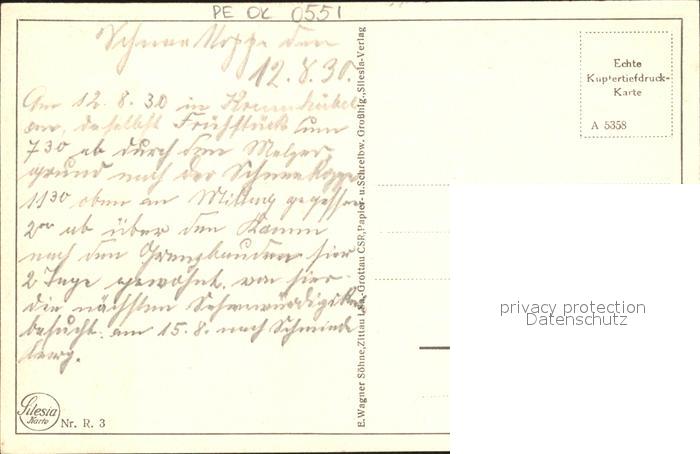 PE OK 0551
Schneekoppe den
12.8.30.
Am 12.8.30 in Krummhübel
an, daselbst Frühstück um
7 30 ab durch den Melzer
grund nach der Schneekoppe
11 30 oben an Mittag gegessen
2 00 ab über den Kamm
nach den Grenzbauden hier
2 Tage gewohnt, von hier
die nächsten Sehenswürdigkeiten
besucht. am 15.8. nach Schmiede
berg.
Echte
Kupfertiefdruck-
Karte
A 5358
E. Wagner Söhne, Zittau i. Sa.-Grottau CSR, Papier- u. Schreibw. Großhlg., Silesia-Verlag
privacy protection
Datenschutz
Silesia
Karte
Nr. R. 3